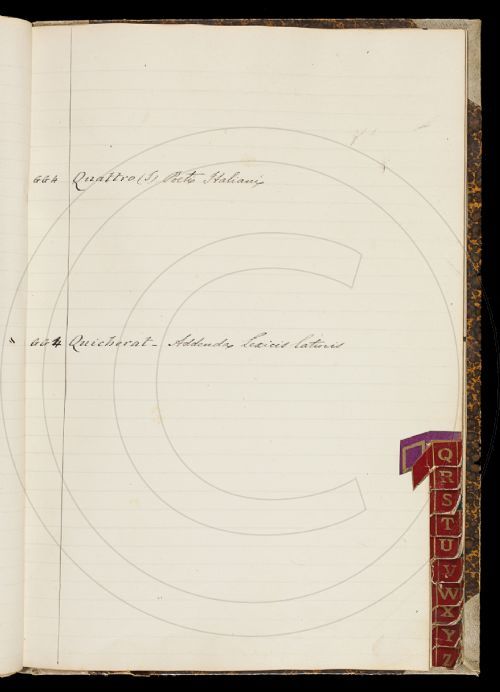 GGh Quattro (I) Poeti Italiani
" GG4 Quicherat - Addenda Lexicis Latinis
Q
R
S
T
U
V
W
X
Y
Z